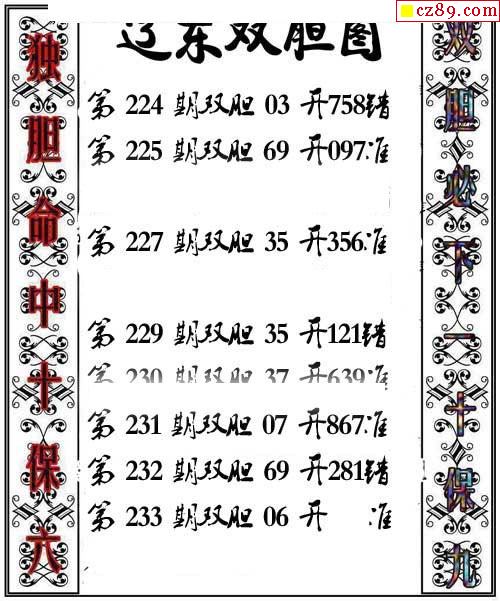 cz89.com
辽东双胆图
独胆命中十保六
第 224 期双胆 03 开758错
第 225 期双胆 69 开097准
第 227 期双胆 35 开356准
第 229 期双胆 35 开121错
第 230 期双胆 37 开639准
第 231 期双胆 07 开867准
第 232 期双胆 69 开281错
第 233 期双胆 06 开 准
双胆必下一十保九